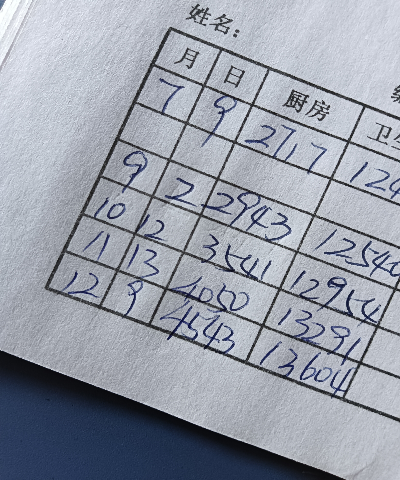 姓名:
月 日 厨房 卫生
7 9 2717 124
9 2 2943 12540
10 12 3541 12954
11 13 4050 13291
12 9 4543 13604